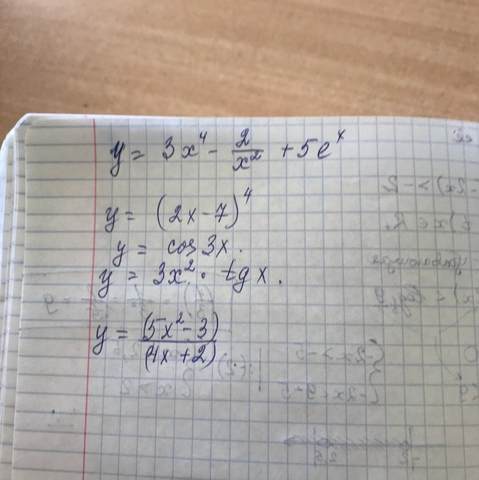 y = 3x⁴ - 2/x² + 5eˣ
y = (2x-7)⁴
y = cos 3x.
y = 3x² · tg x.
y = (5x²-3)/(4x+2)